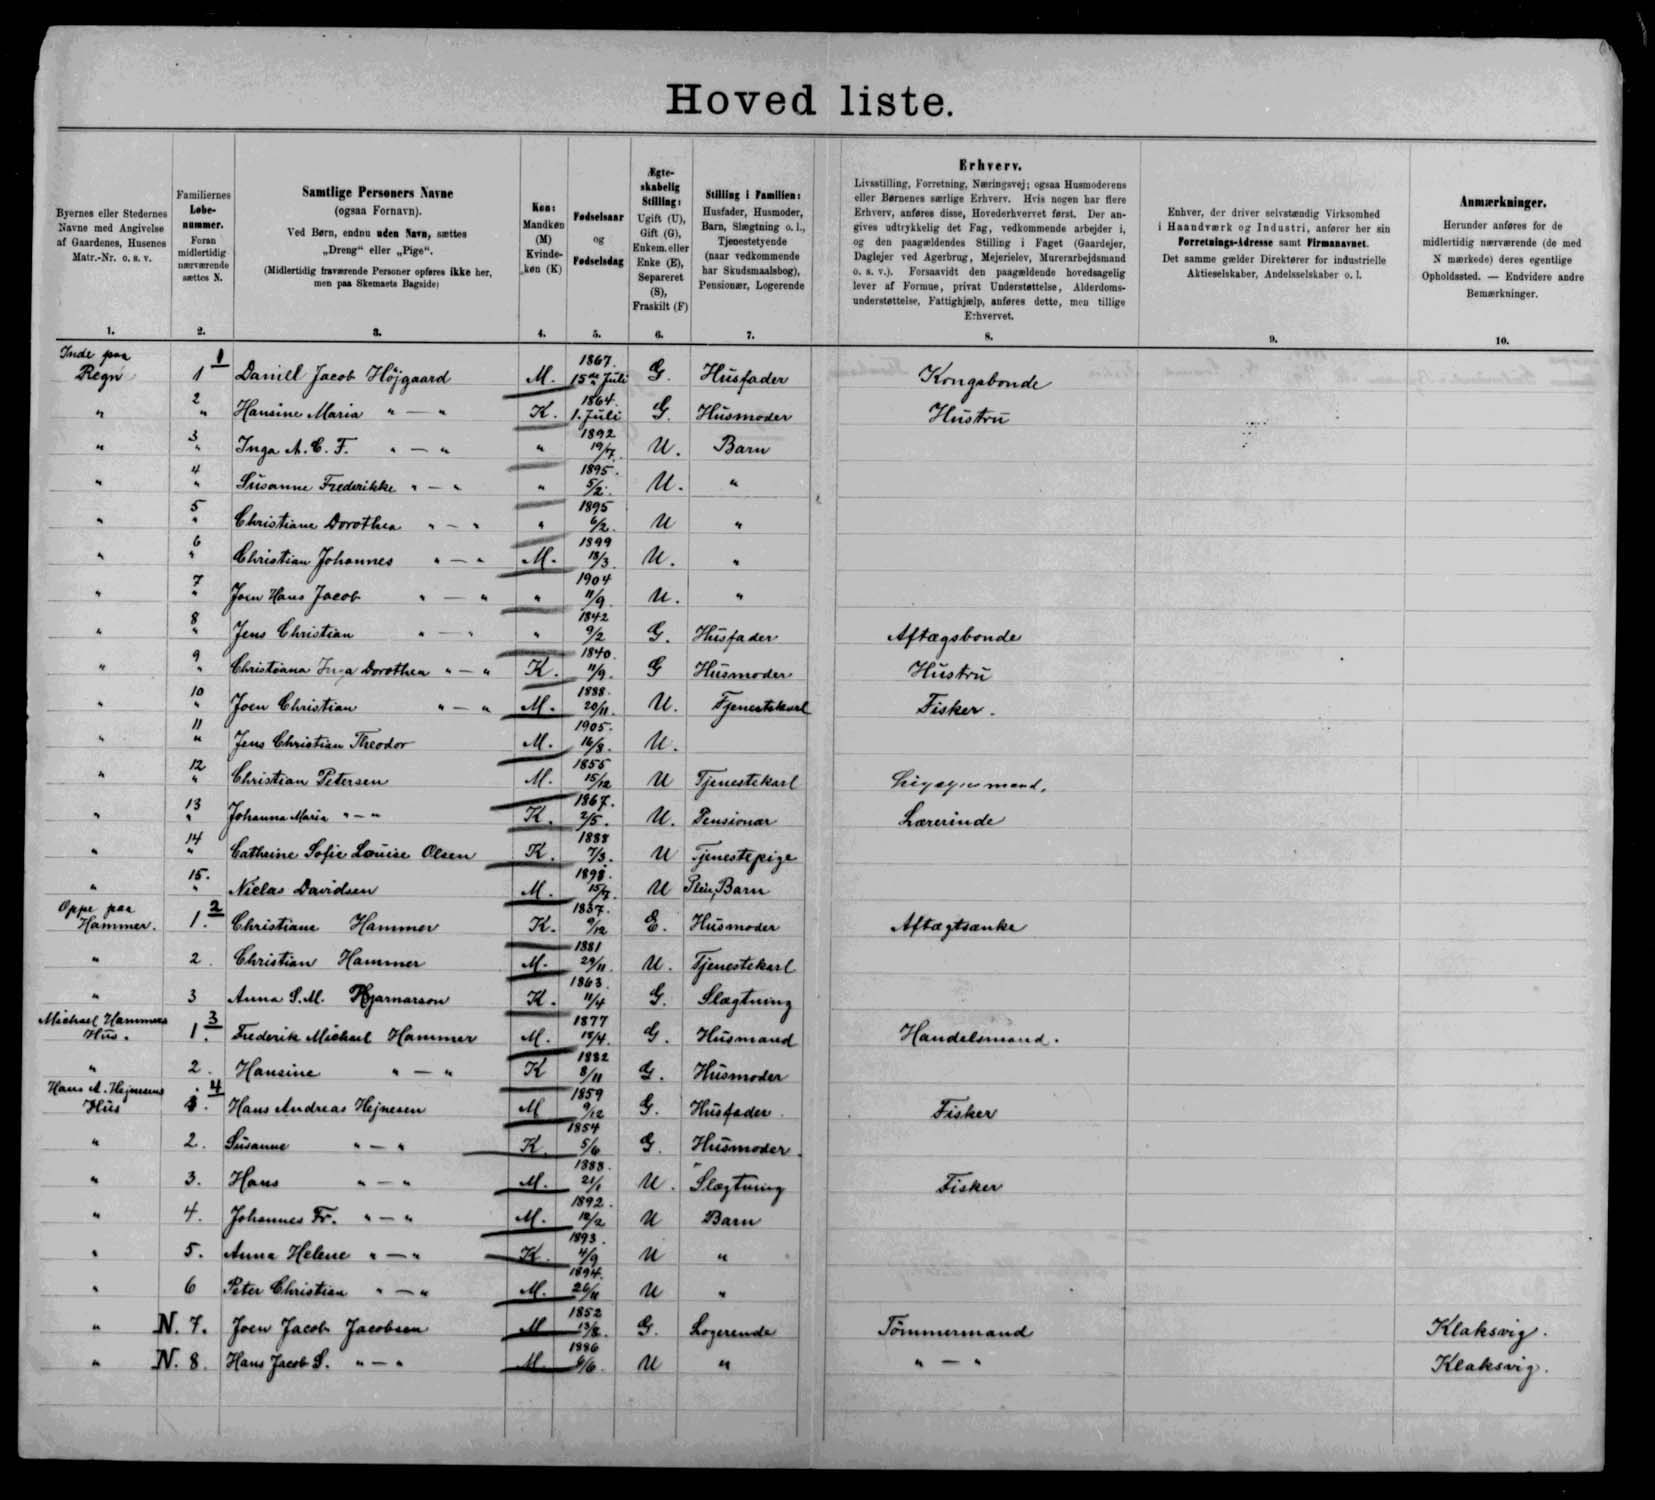 Hoved liste.
Byernes eller Stedernes Navne med Angivelse af Gaardenes, Husenes Matr.-Nr. o. s. v.
Familiernes Løbe-nummer. Foran midlertidig nærværende sættes N.
Samtlige Personers Navne (ogsaa Fornavn). Ved Børn, endnu uden Navn, sættes „Dreng“ eller „Pige“. (Midlertidig fraværende Personer opføres ikke her, men paa Skemaets Bagside)
Køn: Mandkøn (M) Kvinde-køn (K)
Fødselsaar og Fødselsdag
Ægte-skabelig Stilling: Ugift (U), Gift (G), Enkem. eller Enke (E), Separeret (S), Fraskilt (F)
Stilling i Familien: Husfader, Husmoder, Barn, Slægtning o. l., Tjenestetyende (naar vedkommende har Skudsmaalsbog), Pensionær, Logerende
Erhverv. Livsstilling, Forretning, Næringsvej; ogsaa Husmoderens eller Børnenes særlige Erhverv. Hvis nogen har flere Erhverv, anføres disse, Hovederhvervet først. Der angives udtrykkelig det Fag, vedkommende arbejder i, og den paagældendes Stilling i Faget (Gaardejer, Daglejer ved Agerbrug, Mejerielev, Murerarbejdsmand o. s. v.). Forsaavidt den paagældende hovedsagelig lever af Formue, privat Understøttelse, Alderdoms-understøttelse, Fattighjælp, anføres dette, men tillige Erhvervet.
Enhver, der driver selvstændig Virksomhed i Haandværk og Industri, anfører her sin Forretnings-Adresse samt Firmanavnet. Det samme gælder Direktører for industrielle Aktieselskaber, Andelsselskaber o. l.
Anmærkninger. Herunder anføres for de midlertidig nærværende (de med N mærkede) deres egentlige Opholdssted. — Endvidere andre Bemærkninger.
1. 2. 3. 4. 5. 6. 7. 8. 9. 10.
Inde paa Regn 1 1 Daniel Jacob Höjgaard M. 1867. 15de Juli G. Husfader Kongsbonde
" 2 " Hansine Maria " — " K. 1864. 1. Juli G. Husmoder Hustru
" 3 " Inga A. C. F. " — " " 1892 19/7. U. Barn
" 4 " Susanne Frederikke " — " " 1895. 5/2. U. "
" 5 " Christiane Dorothea " — " " 1895 6/2. U "
" 6 " Christian Johannes " — " M. 1899 18/3. U. "
" 7 " Joen Hans Jacob " — " " 1904 11/9. U. "
" 8 " Jens Christian " — " " 1842 9/2 G. Husfader Aftægsbonde
" 9 " Christiana Inga Dorothea " — " K. 1840. 11/9. G Husmoder Hustru
" 10 " Joen Christian " — " M. 1888. 20/11. U. Tjenestekarl Fisker.
" 11 " Jens Christian Theodor M. 1905. 16/8. U.
" 12 " Christian Petersen M. 1855 15/12 U Tjenestekarl
" 13 " Johanna Maria " — " K. 1867. 2/5. U. Pensionær Lærerinde
" 14 " Cathrine Sofie Louise Olsen K. 1888 7/3. U Tjenestepige
" 15. " Niclas Davidsen M. 1898. 15/7. U Plei, Barn
Oppe paa Hammer. 2 1. Christiane Hammer K. 1837. 9/12 E. Husmoder Aftægtsenke
" 2. Christian Hammer M. 1881 29/11. U. Tjenestekarl
" 3 Anna S. M. Hjarnarson K. 1863. 11/4 G. Slægtning
Michael Hammers Hus. 3 1. Frederik Michael Hammer M. 1877 18/4. G. Husmand Handelsmand.
" 2. Hansine " — " K 1882 8/11 G. Husmoder
Hans A. Hejnesens Hus 4 1. Hans Andreas Hejnesen M 1859 9/12 G. Husfader. Fisker
" 2. Susanne " — " K. 1854 5/6 G. Husmoder.
" 3. Hans " — " M. 1888. 21/1 U. Slægtning Fisker
" 4. Johannes Fr. " — " M. 1892. 12/2 U Barn
" 5. Anna Helene " — " K. 1893. 4/9 U "
" 6 Peter Christian " — " M. 1894. 26/11 U "
" N. 7. Joen Jacob Jacobsen M 1852 13/8. G. Logerende Tömmermand Klaksvig.
" N. 8. Hans Jacob S. " — " M. 1886 6/6. U " " — " Klaksvig.